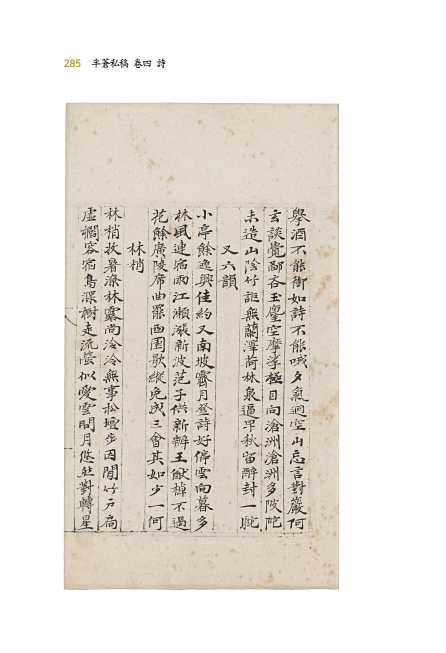 285 半蒼私稿 卷四 詩
擧酒不能銜如詩不能哦夕氣逈空山忘言對巖何
玄談覺鄙吝玉麈空摩挲極目向滄洲滄洲多陂陀
未造山陰竹詎無蘭澤荷林泉逼早秋留醉封一
又六韻
小亭餘逸興佳約又南坡霽月登詩好停雲向暮多
林風連宿雨江瀨漲新波芡子供新辦王猷棹不過
花餘廣陵席曲罷西園歌縱免成三會其如少一何
林梢
林梢收暑深林露尚泠泠無事松壇步因閒竹戶扃
虛櫩容宿鳥深樹走流螢似愛雲間月悠然對轉星